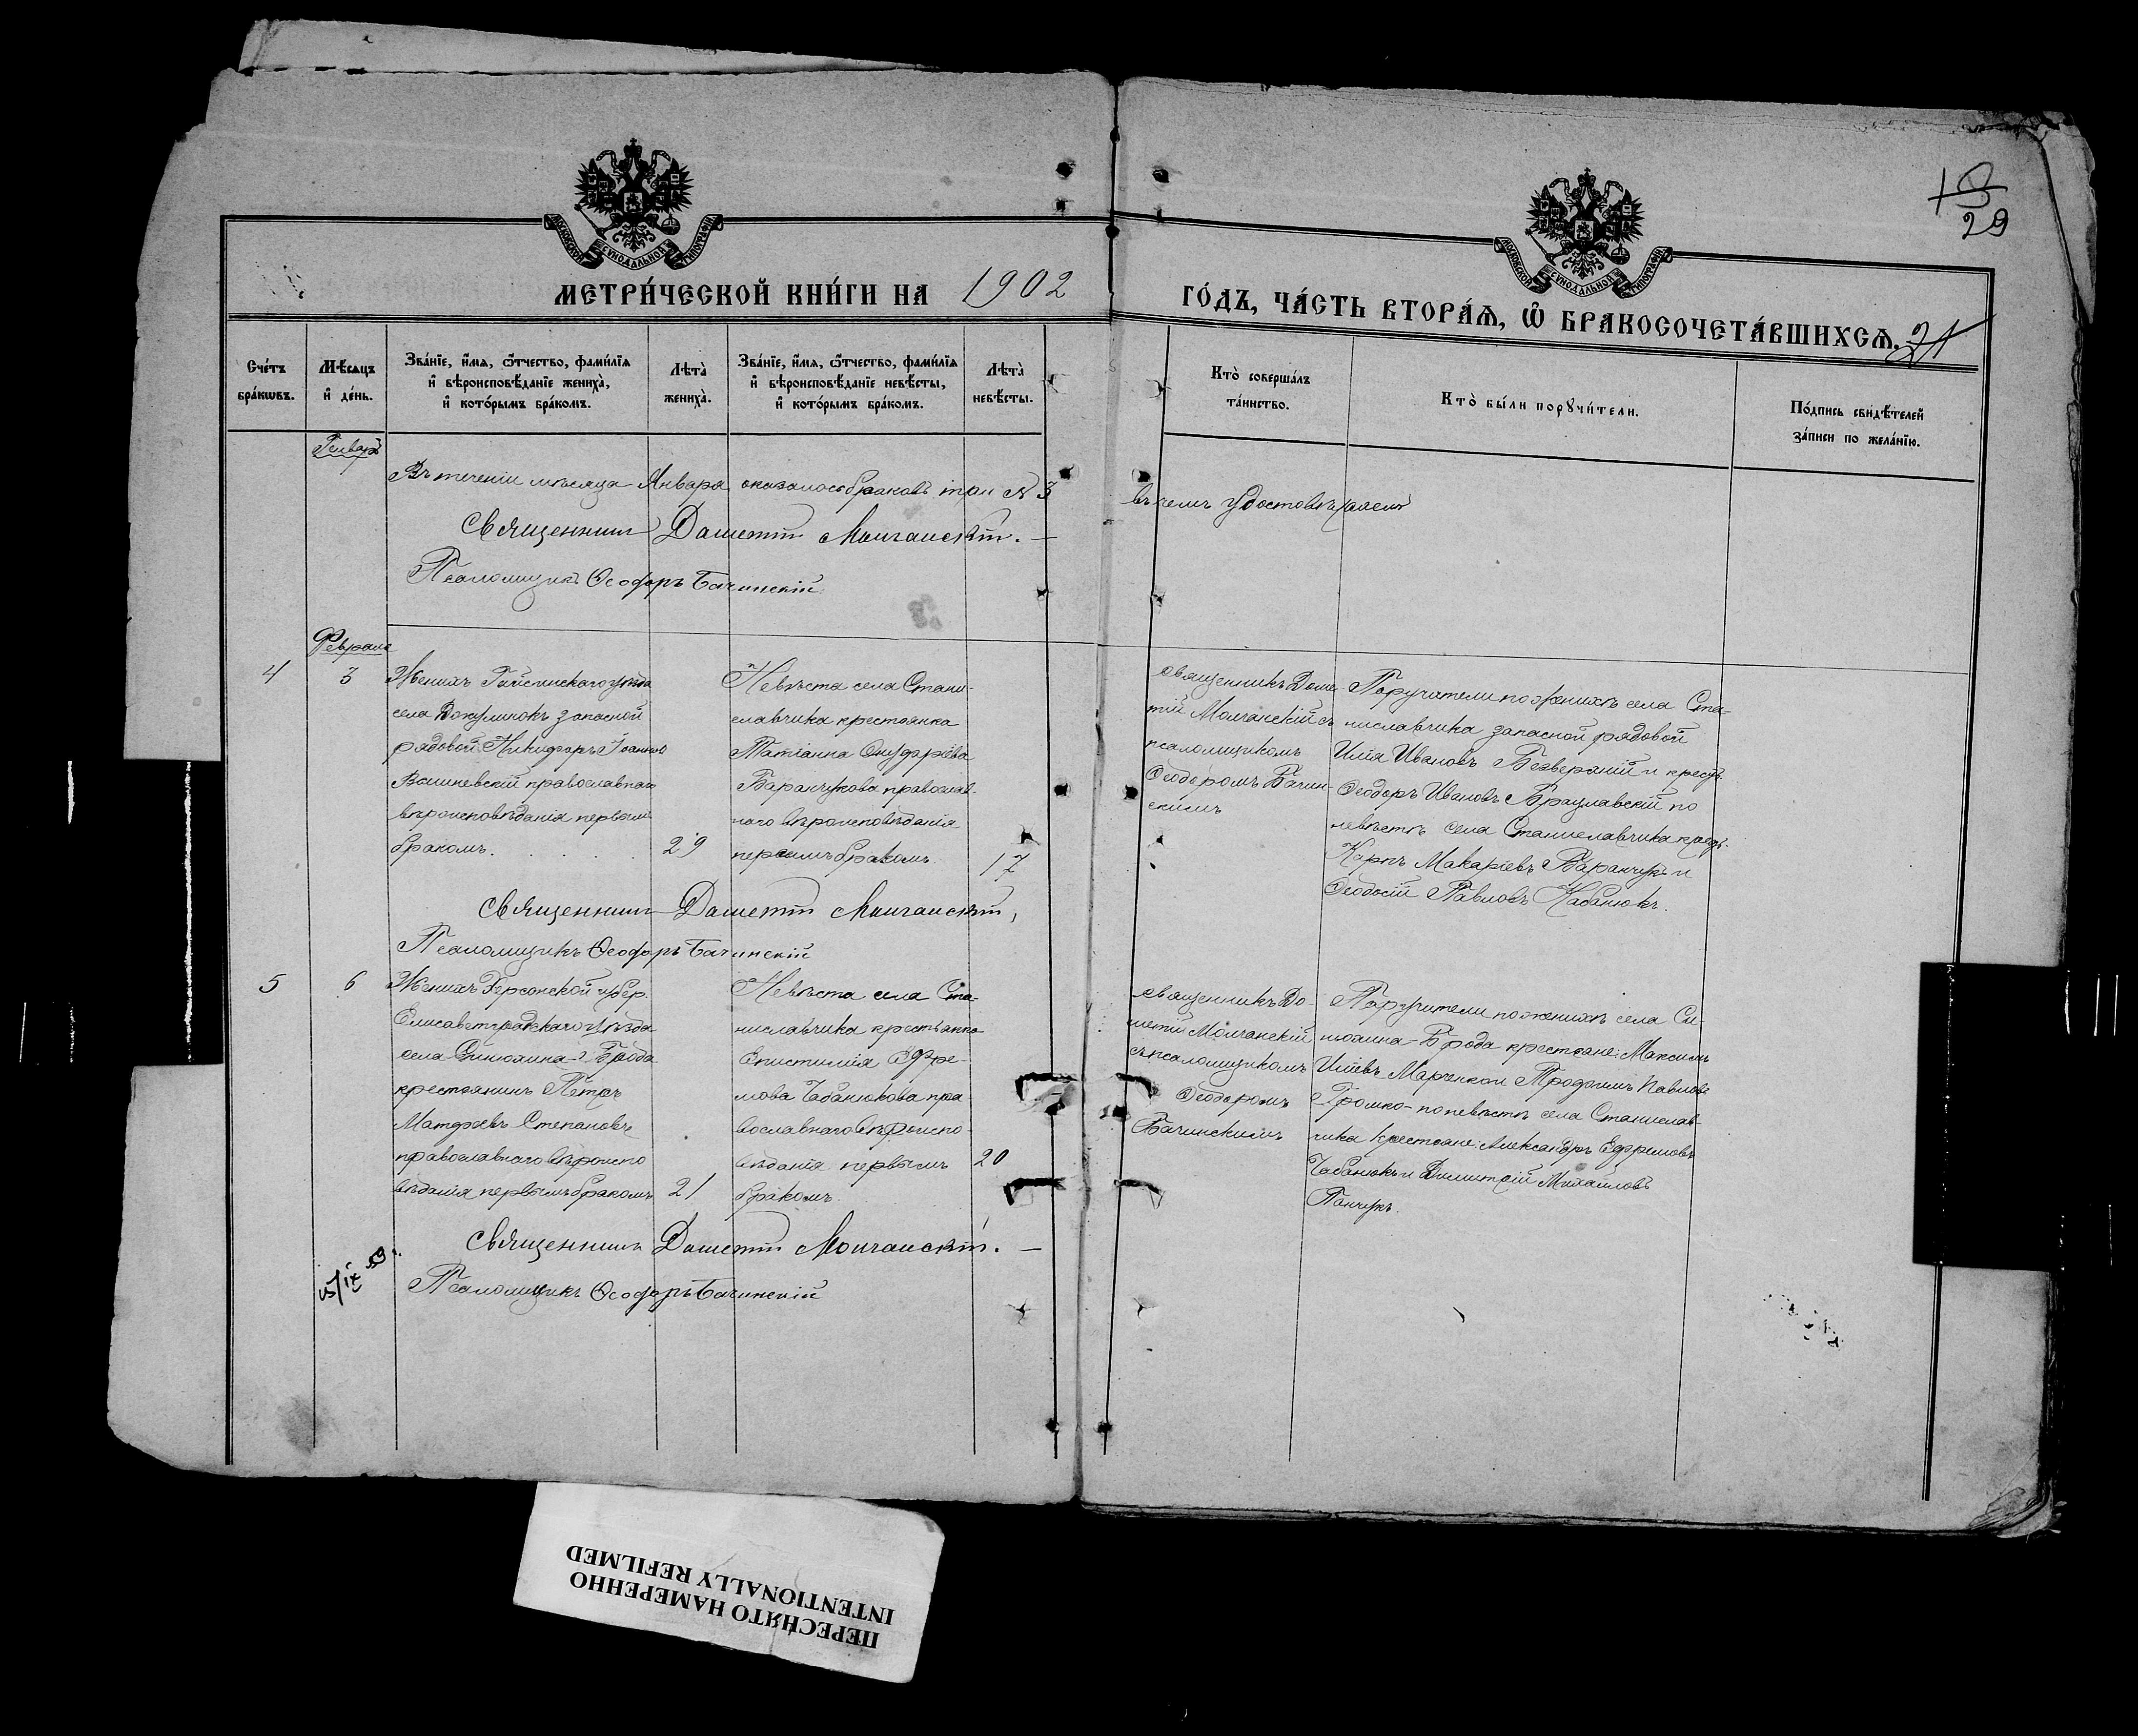 18
29
МОСКОВСКОЙ СѴНОДАЛЬНОЙ ТИПОГРАФІИ
МОСКОВСКОЙ СѴНОДАЛЬНОЙ ТИПОГРАФІИ
МЕТРИ́ЧЕСКОЙ КНИ́ГИ НА 1902
ГО́ДЪ, ЧА́СТЬ ВТОРА́Ѧ, Ѽ БРАКОСОЧЕТА́ВШИХСѦ. 21
Сче́тъ
бра́кѡвъ.
Мѣ́сяцъ
и҆ де́нь.
Зва́нїе, и҆́мѧ, ѻ҆́тчество, фами́лїѧ
и҆ вѣроисповѣ́данїе жениха̀,
и҆ кото́рымъ бра́комъ.
Лѣта̀
жениха̀.
Зва́нїе, и҆́мѧ, ѻ҆́тчество, фами́лїѧ
и҆ вѣроисповѣ́данїе невѣ́сты,
и҆ кото́рымъ бра́комъ.
Лѣта̀
невѣ́сты.
Кто̀ соверша́лъ
та́инство.
Кто̀ бы́ли порꙋчи́тели.
По́дпись свидѣ́телей
за́писи по жела́нїю.
Январь
Въ теченіи мѣсяца Января оказалось браковъ три № 3
въ чемъ удостовѣряемъ
Священникъ Дометій Молчанскій. —
Псаломщикъ Ѳеодоръ Бачинскій
Февраль
4 3
Женихъ Гайсинскаго уѣзда
села запасной
рядовой Никифоръ Іоанновъ
Вишневскій православнаго
вѣроисповѣданія первымъ
бракомъ. 29
Невѣста села Стани-
славчика крестьянка
Татіанна Онуфріева
Баранчукова православ-
наго вѣроисповѣданія
первымъ бракомъ. 17
священникъ Доме-
тій Молчанскій съ
псаломщикомъ
Ѳеодоромъ Бачин-
скимъ
Поручители по женихѣ села Ста-
ниславчика запасной рядовой
Илія Ивановъ Безверхній и крест.
Ѳеодоръ Ивановъ Брацлавскій по
невѣстѣ села Станиславчика крест.
Карпъ Макаріевъ Баранчукъ и
Ѳеодосій Павловъ Чабанюкъ.
Священникъ Дометій Молчанскій,
Псаломщикъ Ѳеодоръ Бачинскій
5 6
Женихъ Херсонской губер.
Елисаветградскаго уѣзда
села Синюхина-Брода
крестьянинъ Петръ
Матфѣевъ Степановъ
православнаго вѣроиспо
вѣданія первымъ бракомъ 21
Невѣста села Ста-
ниславчика крестьянка
Епистимія Ефре-
мова Чабанюкова пра-
вославнаго вѣроиспо-
вѣданія первымъ 20
бракомъ.
священникъ До-
метій Молчанскій
съ псаломщикомъ
Ѳеодоромъ
Бачинскимъ
Поручители по женихѣ села Си-
нюхина-Брода крестьяне: Максимъ
Иліевъ Марченко и Трофимъ Павловъ
Громко - по невѣстѣ села Станислав-
чика крестьяне: Александръ Ефремовъ
Чабанюкъ и Димитрій Михаиловъ
Панчукъ.
Священникъ Дометій Молчанскій. —
Псаломщикъ Ѳеодоръ Бачинскій
ПЕРЕСНЯТО НАМЕРЕННО
INTENTIONALLY REFILMED